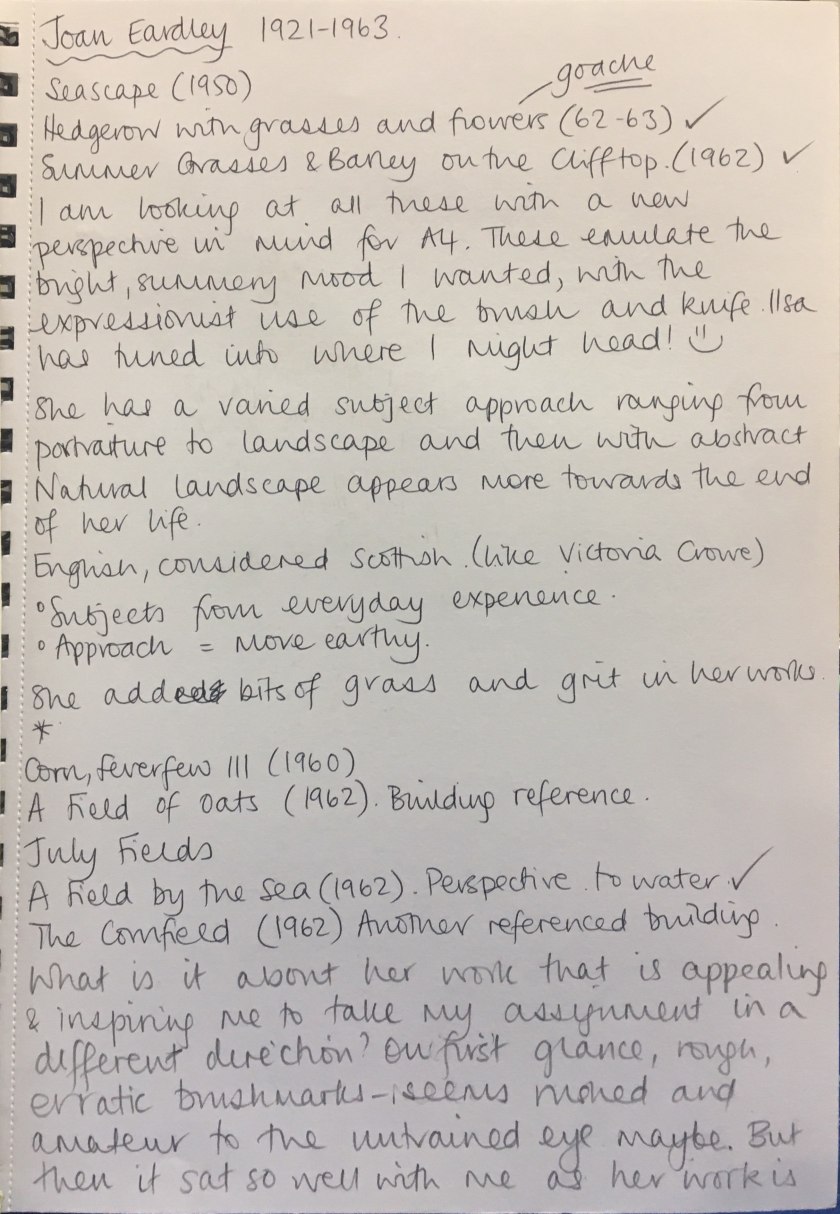 Joan Eardley 1921-1963.
goache
Seascape (1950)
Hedgerow with grasses and flowers (62-63) ✓
Summer Grasses & Barley on the Clifftop. (1962) ✓
I am looking at all these with a new
perspective in mind for A4. These emulate the
bright, summery mood I wanted, with the
expressionist use of the brush and knife. Ilsa
has tuned into where I might head! ☺
She has a varied subject approach ranging from
portraiture to landscape and then with abstract
Natural landscape appears more towards the end
of her life.
English, considered Scottish. (like Victoria Crowe)
° Subjects from everyday experience.
° Approach = more earthy.
She added bits of grass and grit in her works.
*
Corn, feverfew III (1960)
A Field of Oats (1962). Building reference.
July Fields
A Field by the Sea (1962). Perspective to water ✓
The Cornfield (1962) Another referenced building.
What is it about her work that is appealing
& inspiring me to take my assignment in a
different direction? On first glance, rough,
erratic brushmarks - seems rushed and
amateur to the untrained eye maybe. But
then it sat so well with me as her work is